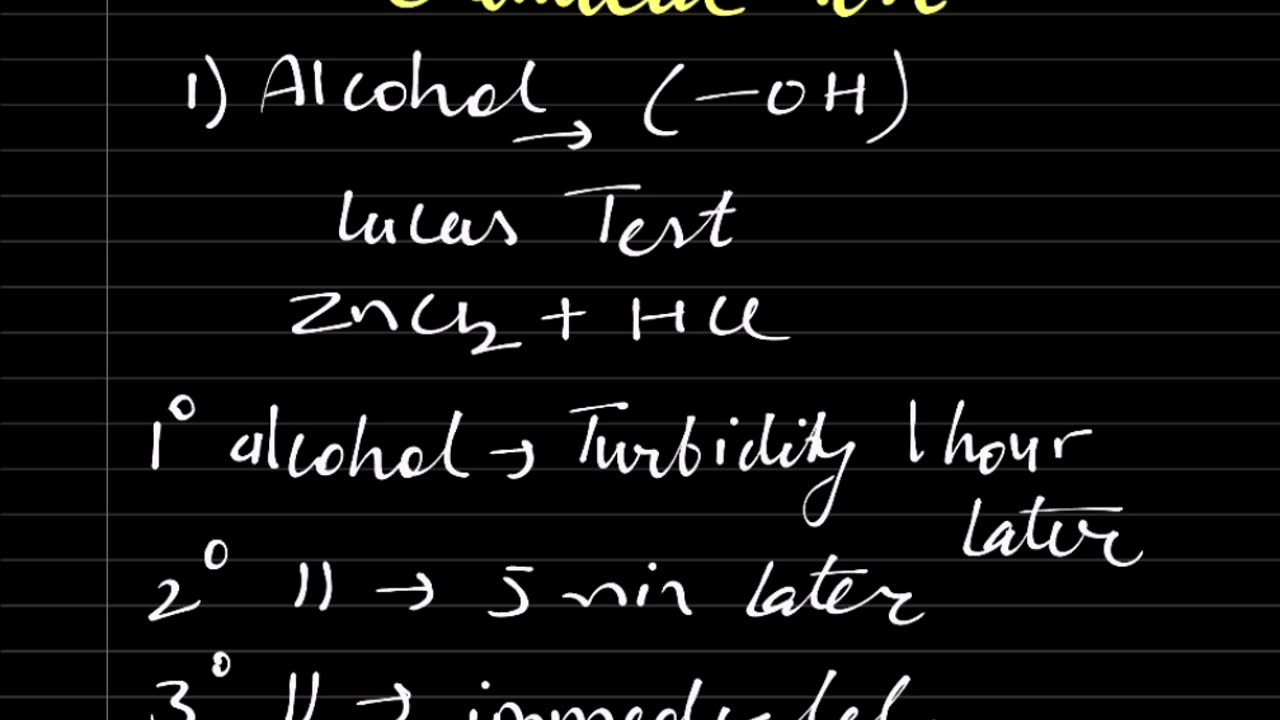 1) Alcohol → (-OH)
Lucas Test
ZnCl₂ + HCl
1° alcohol → Turbidity 1 hour
Later
2° || → 5 min Later
3° || →